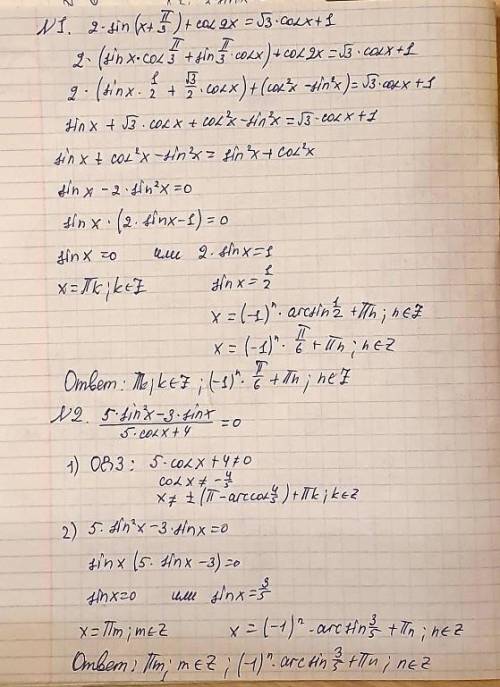 N1. 2·sin(x+π/3)+cos2x=√3·cosx+1
2·(sinx·cos π/3 + sin π/3·cosx)+cos2x=√3·cosx+1
2·(sinx·1/2 + √3/2·cosx)+(cos²x-sin²x)=√3·cosx+1
sinx+√3·cosx+cos²x-sin²x=√3·cosx+1
sinx+cos²x-sin²x=sin²x+cos²x
sinx-2·sin²x=0
sinx·(2·sinx-1)=0
sinx=0 или 2·sinx=1
x=πk; k∈Z sinx=1/2
x=(-1)ⁿ·arcsin 1/2+πn; n∈Z
x=(-1)ⁿ·π/6+πn; n∈Z
Ответ: πk; k∈Z; (-1)ⁿ·π/6+πn; n∈Z
N2. (5·sin²x-3·sinx)/(5·cosx+4)=0
1) ОДЗ: 5·cosx+4≠0
cosx≠-4/5
x≠±(π-arccos 4/5)+πk; k∈Z
2) 5·sin²x-3·sinx=0
sinx(5·sinx-3)=0
sinx=0 или sinx=3/5
x=πm; m∈Z x=(-1)ⁿ·arcsin 3/5+πn; n∈Z
Ответ: πm; m∈Z; (-1)ⁿ·arcsin 3/5+πn; n∈Z